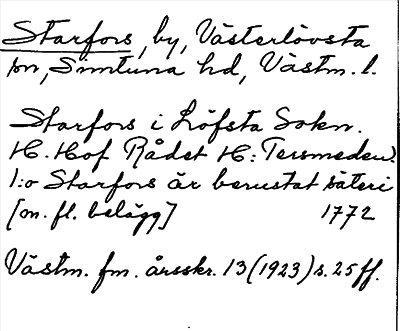 Starfors, by, Västerlövsta
sn, Simtuna hd, Västm. l.
Starfors i Löfsta Sokn.
H. Hof Rådet H: Tersmeden.
1:o Starfors är berustat säteri
[m. fl. belägg] 1772
Västm. fm. årsskr. 13 (1923) s. 25 ff.